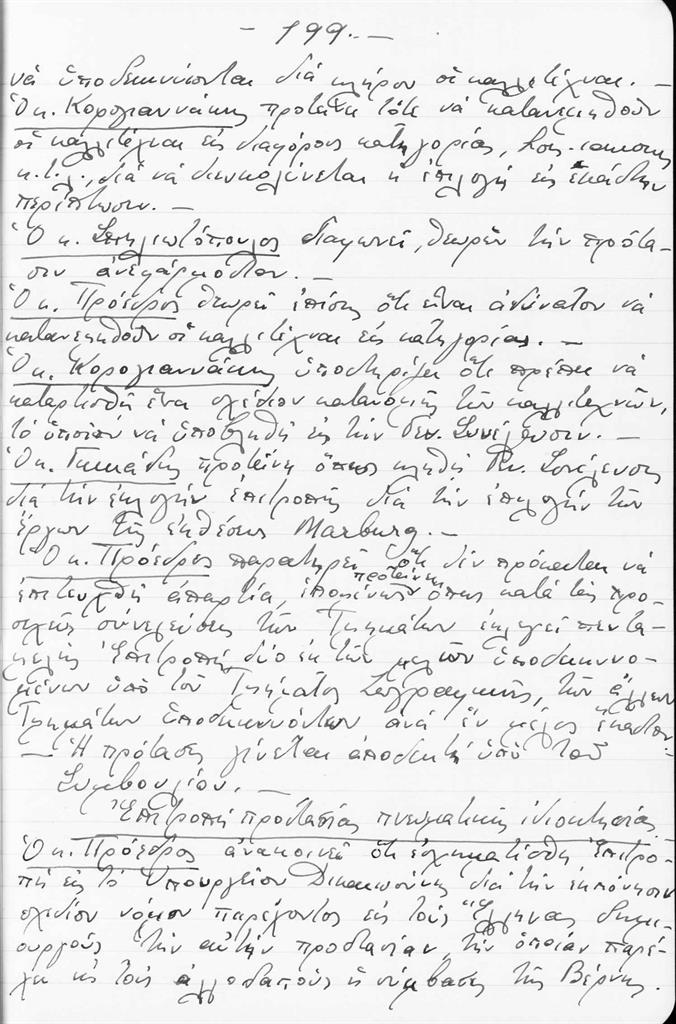 - 199. -
νά ὑποδεικνύωνται διά κλήρου οἱ καλλιτέχναι. -
Ὁ κ. Κορογιαννάκης προτείνει τότε νά κατανεμηθοῦν
οἱ καλλιτέχναι εἰς διαφόρους κατηγορίας,
κ.τ.λ., διά νά διευκολύνεται ἡ ἐπιλογή εἰς ἑκάστην
περίπτωσιν. -
Ὁ κ. Σπηλιωτόπουλος διαφωνεῖ, θεωρῶν τήν πρότα-
σιν ἀνεφάρμοστον. -
Ὁ κ. Πρόεδρος θεωρεῖ ἐπίσης ὅτι εἶναι ἀδύνατον νά
κατανεμηθοῦν οἱ καλλιτέχναι εἰς κατηγορίας. -
Ὁ κ. Κορογιαννάκης ὑποστηρίζει ὅτι πρέπει νά
καταρτισθῇ ἕνα σχέδιον κατανομῆς τῶν καλλιτεχνῶν,
τό ὁποῖον νά ὑποβληθῇ εἰς τήν Γεν. Συνέλευσιν. -
Ὁ κ. προτείνει ὅπως κληθῇ Γεν. Συνέλευσις
διά τήν ἐκλογήν ἐπιτροπῆς διά τήν ἐπιλογήν τῶν
ἔργων τῆς ἐκθέσεως Marburg. -
Ὁ κ. Πρόεδρος παρατηρεῖ ὅτι δέν πρόκειται νά
ἐπιτευχθῇ ἀπαρτία, ἑπομένως προτείνει ὅπως κατά τάς προ-
σεχεῖς συνελεύσεις τῶν Τμημάτων ἐκλεγεῖ πεντα-
μελής Ἐπιτροπή, δύο ἐκ τῶν μελῶν ὑποδεικνυο-
μένων ὑπό τοῦ Τμήματος Ζωγραφικῆς, τῶν ἄλλων
Τμημάτων ὑποδεικνυόντων ἀνά ἕν μέλος ἕκαστον. -
- Ἡ πρότασις γίνεται ἀποδεκτή ὑπό τοῦ
Συμβουλίου. -
Ἐπιτροπή προστασίας πνευματικῆς ἰδιοκτησίας
Ὁ κ. Πρόεδρος ἀνακοινεῖ ὅτι ἐσχηματίσθη Ἐπιτρο-
πή εἰς τό Ὑπουργεῖον Δικαιοσύνης διά τήν ἐκπόνησιν
σχεδίου νόμου παρέχοντος εἰς τούς Ἕλληνας δημι-
ουργούς τήν αὐτήν προστασίαν, τήν ὁποίαν παρέ-
χει εἰς τούς ἀλλοδαπούς ἡ σύμβασις τῆς Βέρνης.